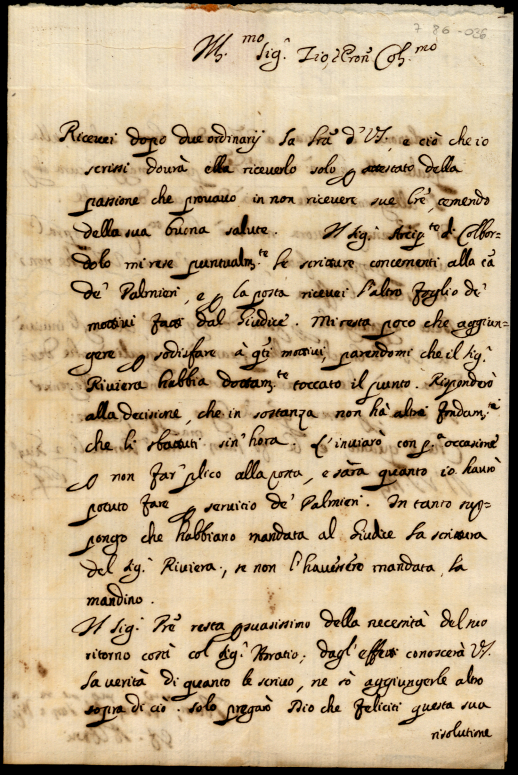 7 86-036
Ill.mo Sig.r Zio, e Pron Col.mo
Ricevei dopo due ordinarij la lra d'VS. e ciò che io
scrissi dovrà ella riceverlo solo p attestato della
passione che provavo in non ricevere sue lre, temendo
della sua buona salute. Il Sig.r Arcip.te di Colbor-
dolo mi rese puntualm.te le scritture concernenti alla ca
de' Palmieri, e p la posta ricevei l'altro foglio de'
motivi fatti dal Giudice. Mi resta poco che aggiun-
gere p sodisfare à qti motivi, parendomi che il Sig.r
Riviera habbia dottam.te toccato il punto. Risponderò
alla decisione, che in sostanza non hà altri fondam.ti
che li sbattuti sin'hora. L'inviarò con p.a occasione
p non far plico alla posta, e sarà quanto io havrò
potuto fare p servicio de' Palmieri. In tanto sup-
pongo che habbiano mandata al Giudice la scrittura
del Sig.r Riviera, se non l'havessero mandata, la
mandino.
Il Sig.r Pre resta psuasissimo della necessità del suo
ritorno costà col Sig.r Horatio; dagl'effetti conoscerà VS.
la verità di quanto le scrivo, ne sò aggiungerle altro
sopra di ciò: solo pregarò Dio che feliciti questa sua
risolutione